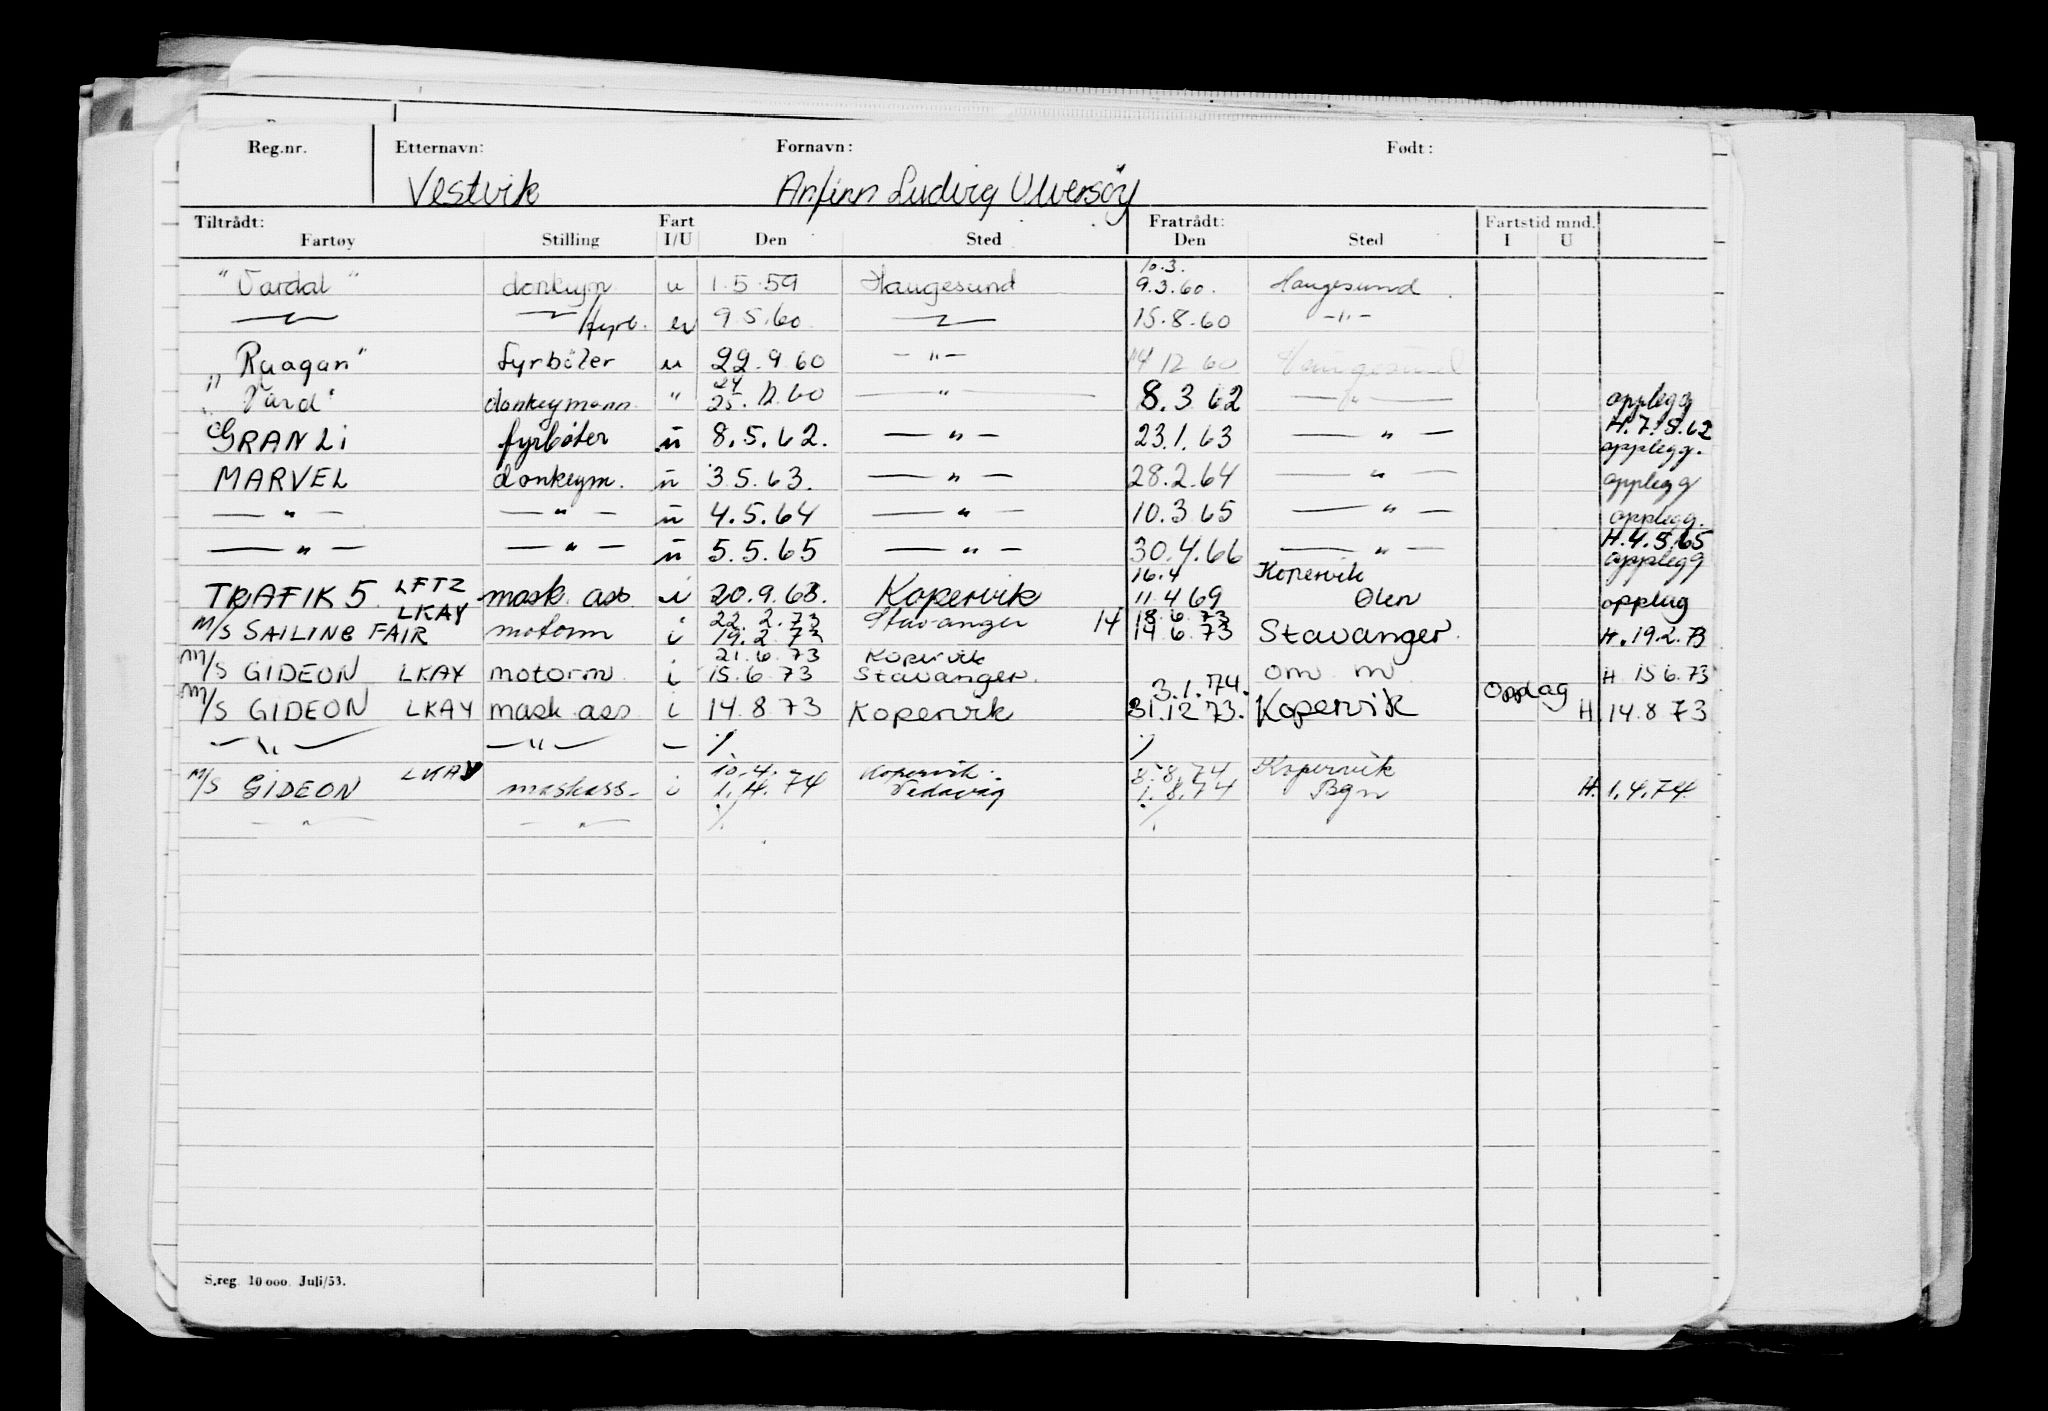 Reg.nr. Etternavn: Fornavn: Født:
Vestvik Arfinn Ludvig Ulversøy
Tiltrådt: Fart Fratrådt: Fartstid mnd.
Fartøy Stilling I/U Den Sted Den Sted I U
10.3.
"Vardal" donkeym u 1.5.59 Haugesund 9.3.60. Haugesund
—"— —"— /fyrb. u 9.5.60 —"— 15.8.60 —"—
"Ragan" fyrbøter u 22.9.60 —"— 14 12 60 Haugesund
24
"Vard" donkeymann " 25.12.60 —"— 8.3 62 —"— opplegg
H.7.5.62
GRANLI fyrbøter u 8.5.62. —"— 23.1.63 —"— opplegg.
MARVEL donkeym. u 3.5.63. —"— 28.2.64 —"— opplegg
—"— —"— u 4.5.64 —"— 10.3.65 —"— opplegg.
H.4.5.65
—"— —"— u 5.5.65 —"— 30.4.66 —"— opplegg
LFTZ 16.4 Kopervik
TRAFIK 5 mask. ass. i 20.9.68. Kopervik 11.4 69 Ølen opplag
LKAY 22.2.73 Stavanger 18.6.73
M/S SAILING FAIR motorm i 19.2.73 14 14.6.73 Stavanger. H.19.2.73
21.6.73 Kopervik
M/S GIDEON LKAY motorm i 15.6.73 Stavanger. om m H 15.6.73
3.1.74. Opplag
M/S GIDEON LKAY mask ass i 14.8.73 Kopervik 31.12.73. Kopervik H. 14.8 73
—"— —"— — ⁒ ⁒
LKAY 10.4. Kopervik. 8.8.74 Kopervik
M/S GIDEON maskass. i 1.4.74 Vedavåg 1.8.74 Bgn H. 1.4.74
—"— —"— ⁒ ⁒
S.reg. 10 000. Juli/53.